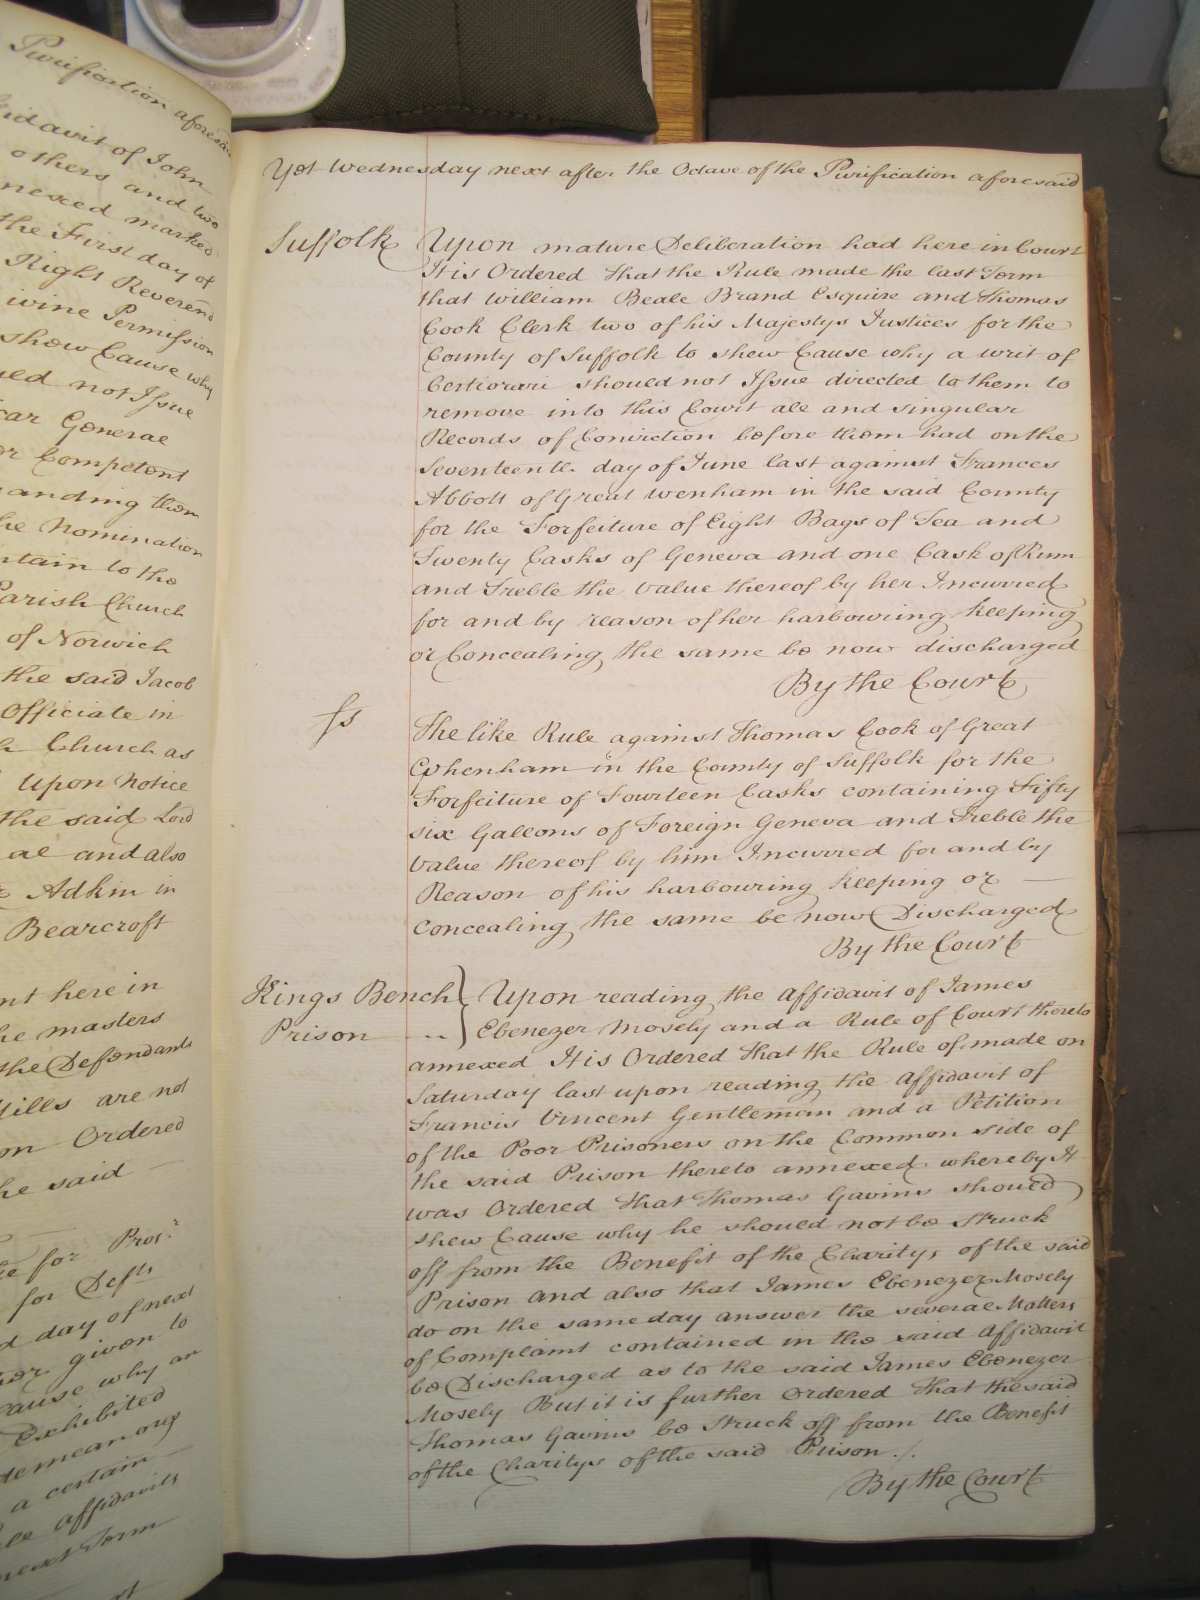 Purification aforesaid
fidavit of John
others and two
nexed marked
the First day of
Right Reverend
ivine Permission
shew Cause why
uld not Issue
car General
or Competent
anding them
he Nomination
rtain to the
Parish Church
of Norwich
the said Jacob
Officiate in
h Church as
Upon Notice
the said Lord
al and also
Adkin in
Bearcroft
nt here in
he masters
the Defendants
Mills are not
on Ordered
he said
for Pros.r
for Defts
d day of next
given to
cause why an
Exhibited
demeanors
a certain
affidavits
next Term
Yet Wednesday next after the Octave of the Purification aforesaid
Suffolk Upon mature Deliberation had here in Court
It is Ordered that the Rule made the last Term
that William Beale Brand Esquire and Thomas
Cook Clerk two of his Majestys Justices for the
County of Suffolk to shew Cause why a writ of
Certiorari should not Issue directed to them to
remove into this Court all and singular
Records of Conviction before them had on the
Seventeenth day of June last against Frances
Abbott of Great Wenham in the said County
for the Forfeiture of Eight Bags of Tea and
Twenty Casks of Geneva and one Cask of Rum
and Treble the Value thereof by her Incurred
for and by reason of her harbouring keeping
or Concealing the same be now discharged
By the Court
ss The like Rule against Thomas Cook of Great
Whenham in the County of Suffolk for the
Forfeiture of Fourteen Casks containing Fifty
six Gallons of Foreign Geneva and Treble the
Value thereof by him Incurred for and by
Reason of his harbouring keeping or
concealing the same be now Discharged
By the Court
Kings Bench } Upon reading the Affidavit of James
Prison Ebenezer Mosely and a Rule of Court thereto
annexed It is Ordered that the Rule of made on
Saturday last upon reading the Affidavit of
Francis Vincent Gentleman and a Petition
of the Poor Prisoners on the Common side of
the said Prison thereto annexed whereby It
was Ordered that Thomas Gavins should
shew Cause why he should not be Struck
off from the Benefit of the Charitys of the said
Prison and also that James Ebenezer Mosely
do on the same day answer the several Matters
of Complaint contained in the said Affidavit
be Discharged as to the said James Ebenezer
Mosely But it is further Ordered that the said
Thomas Gavins be Struck off from the Benefit
of the Charitys of the said Prison ./.
By the Court